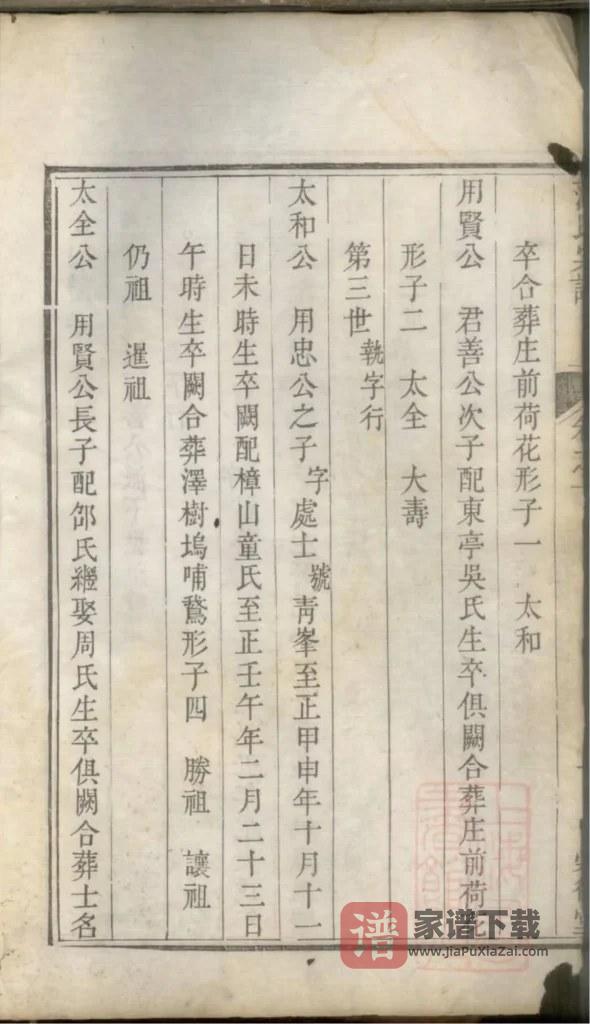 卒合葬庄前荷花形子一 太和
用賢公 君善公次子配東亭吳氏生卒俱闕合葬庄前荷花
形子二 太全 大壽
第三世執字行
太和公 用忠公之子字處士號靑峯至正甲申年十月十一
日未時生卒闕配樟山童氏至正壬午年二月二十三日
午時生卒闕合葬澤樹塢哺鷄形子四 勝祖 讓祖
仍祖 暹祖
太全公 用賢公長子配邵氏繼娶周氏生卒俱闕合葬士名
家谱下载
www.jiaPuXiaZai.com
谱